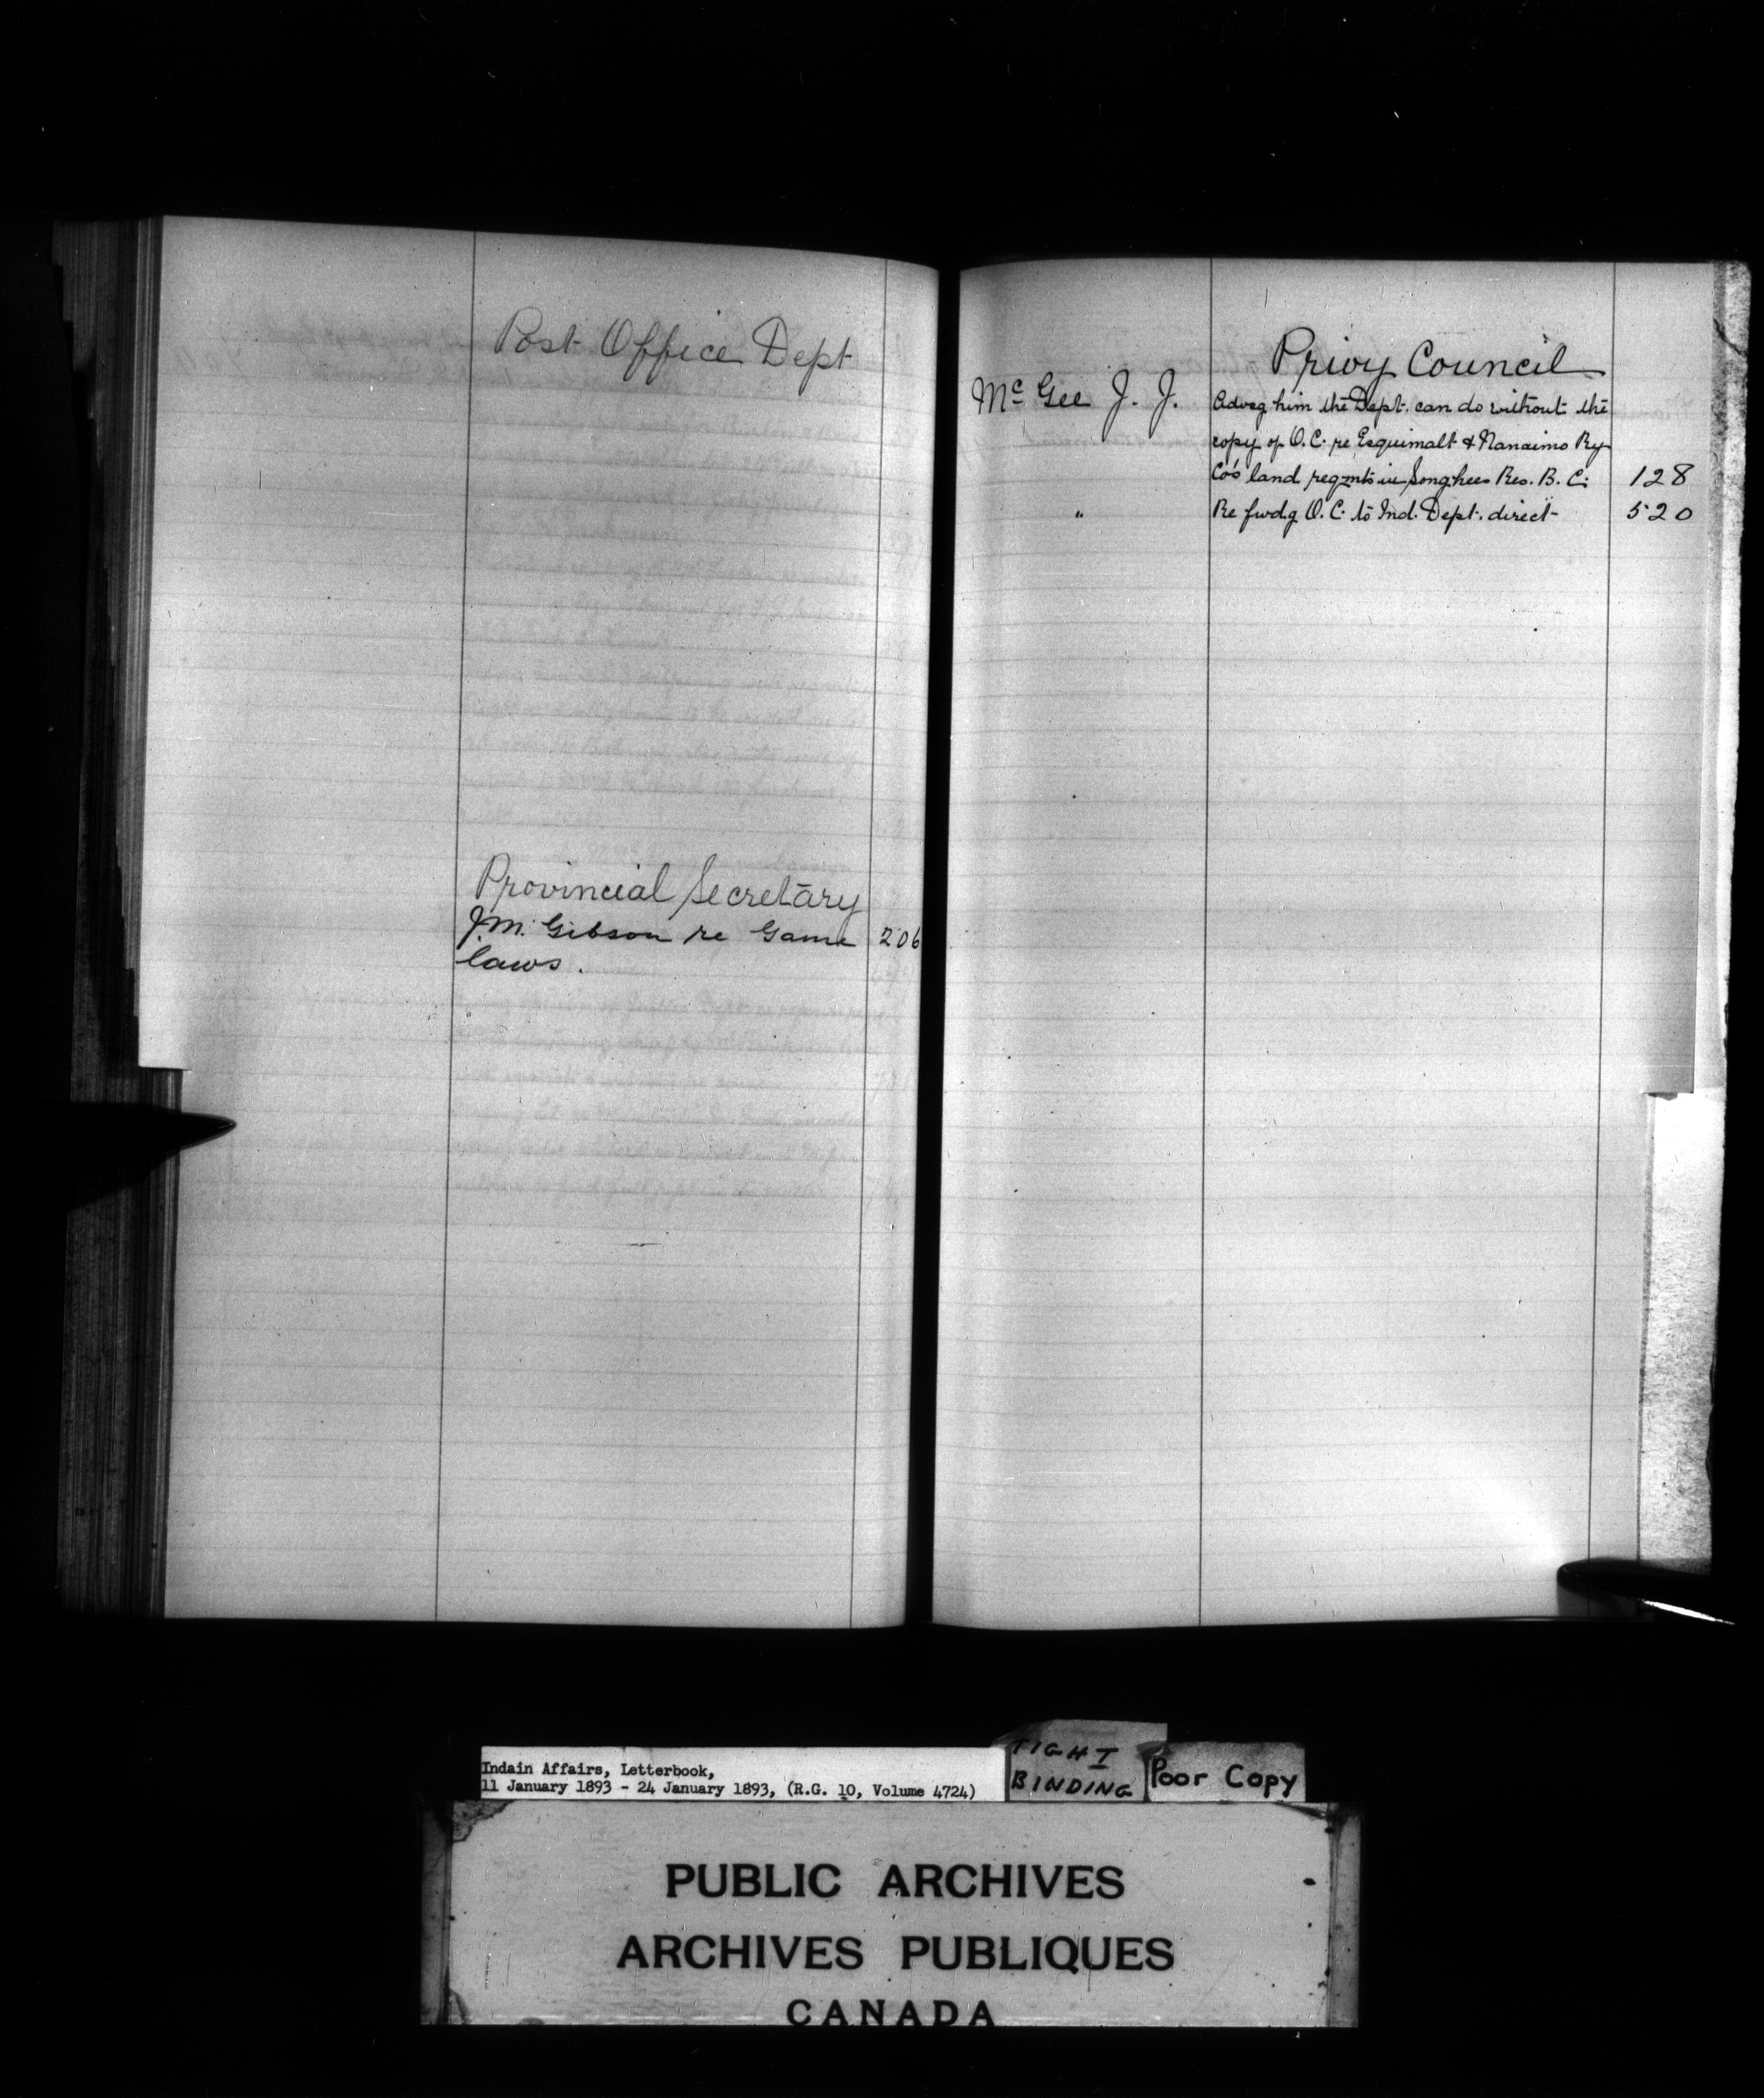 Post Office Dept
Provincial Secretary
J.M. Gibson re Game 206
laws.
Privy Council
McGee J. J. Advsg him the Dept. can do without the
copy of O.C. re Esquimalt & Nanaimo Ry
Co's land reqmts in Songhees Res. B.C. 128
" Re fwdg O.C. to Ind. Dept. direct 520
Indain Affairs, Letterbook,
11 January 1893 - 24 January 1893, (R.G. 10, Volume 4724)
TIGHT
BINDING
Poor Copy
PUBLIC ARCHIVES
ARCHIVES PUBLIQUES
CANADA